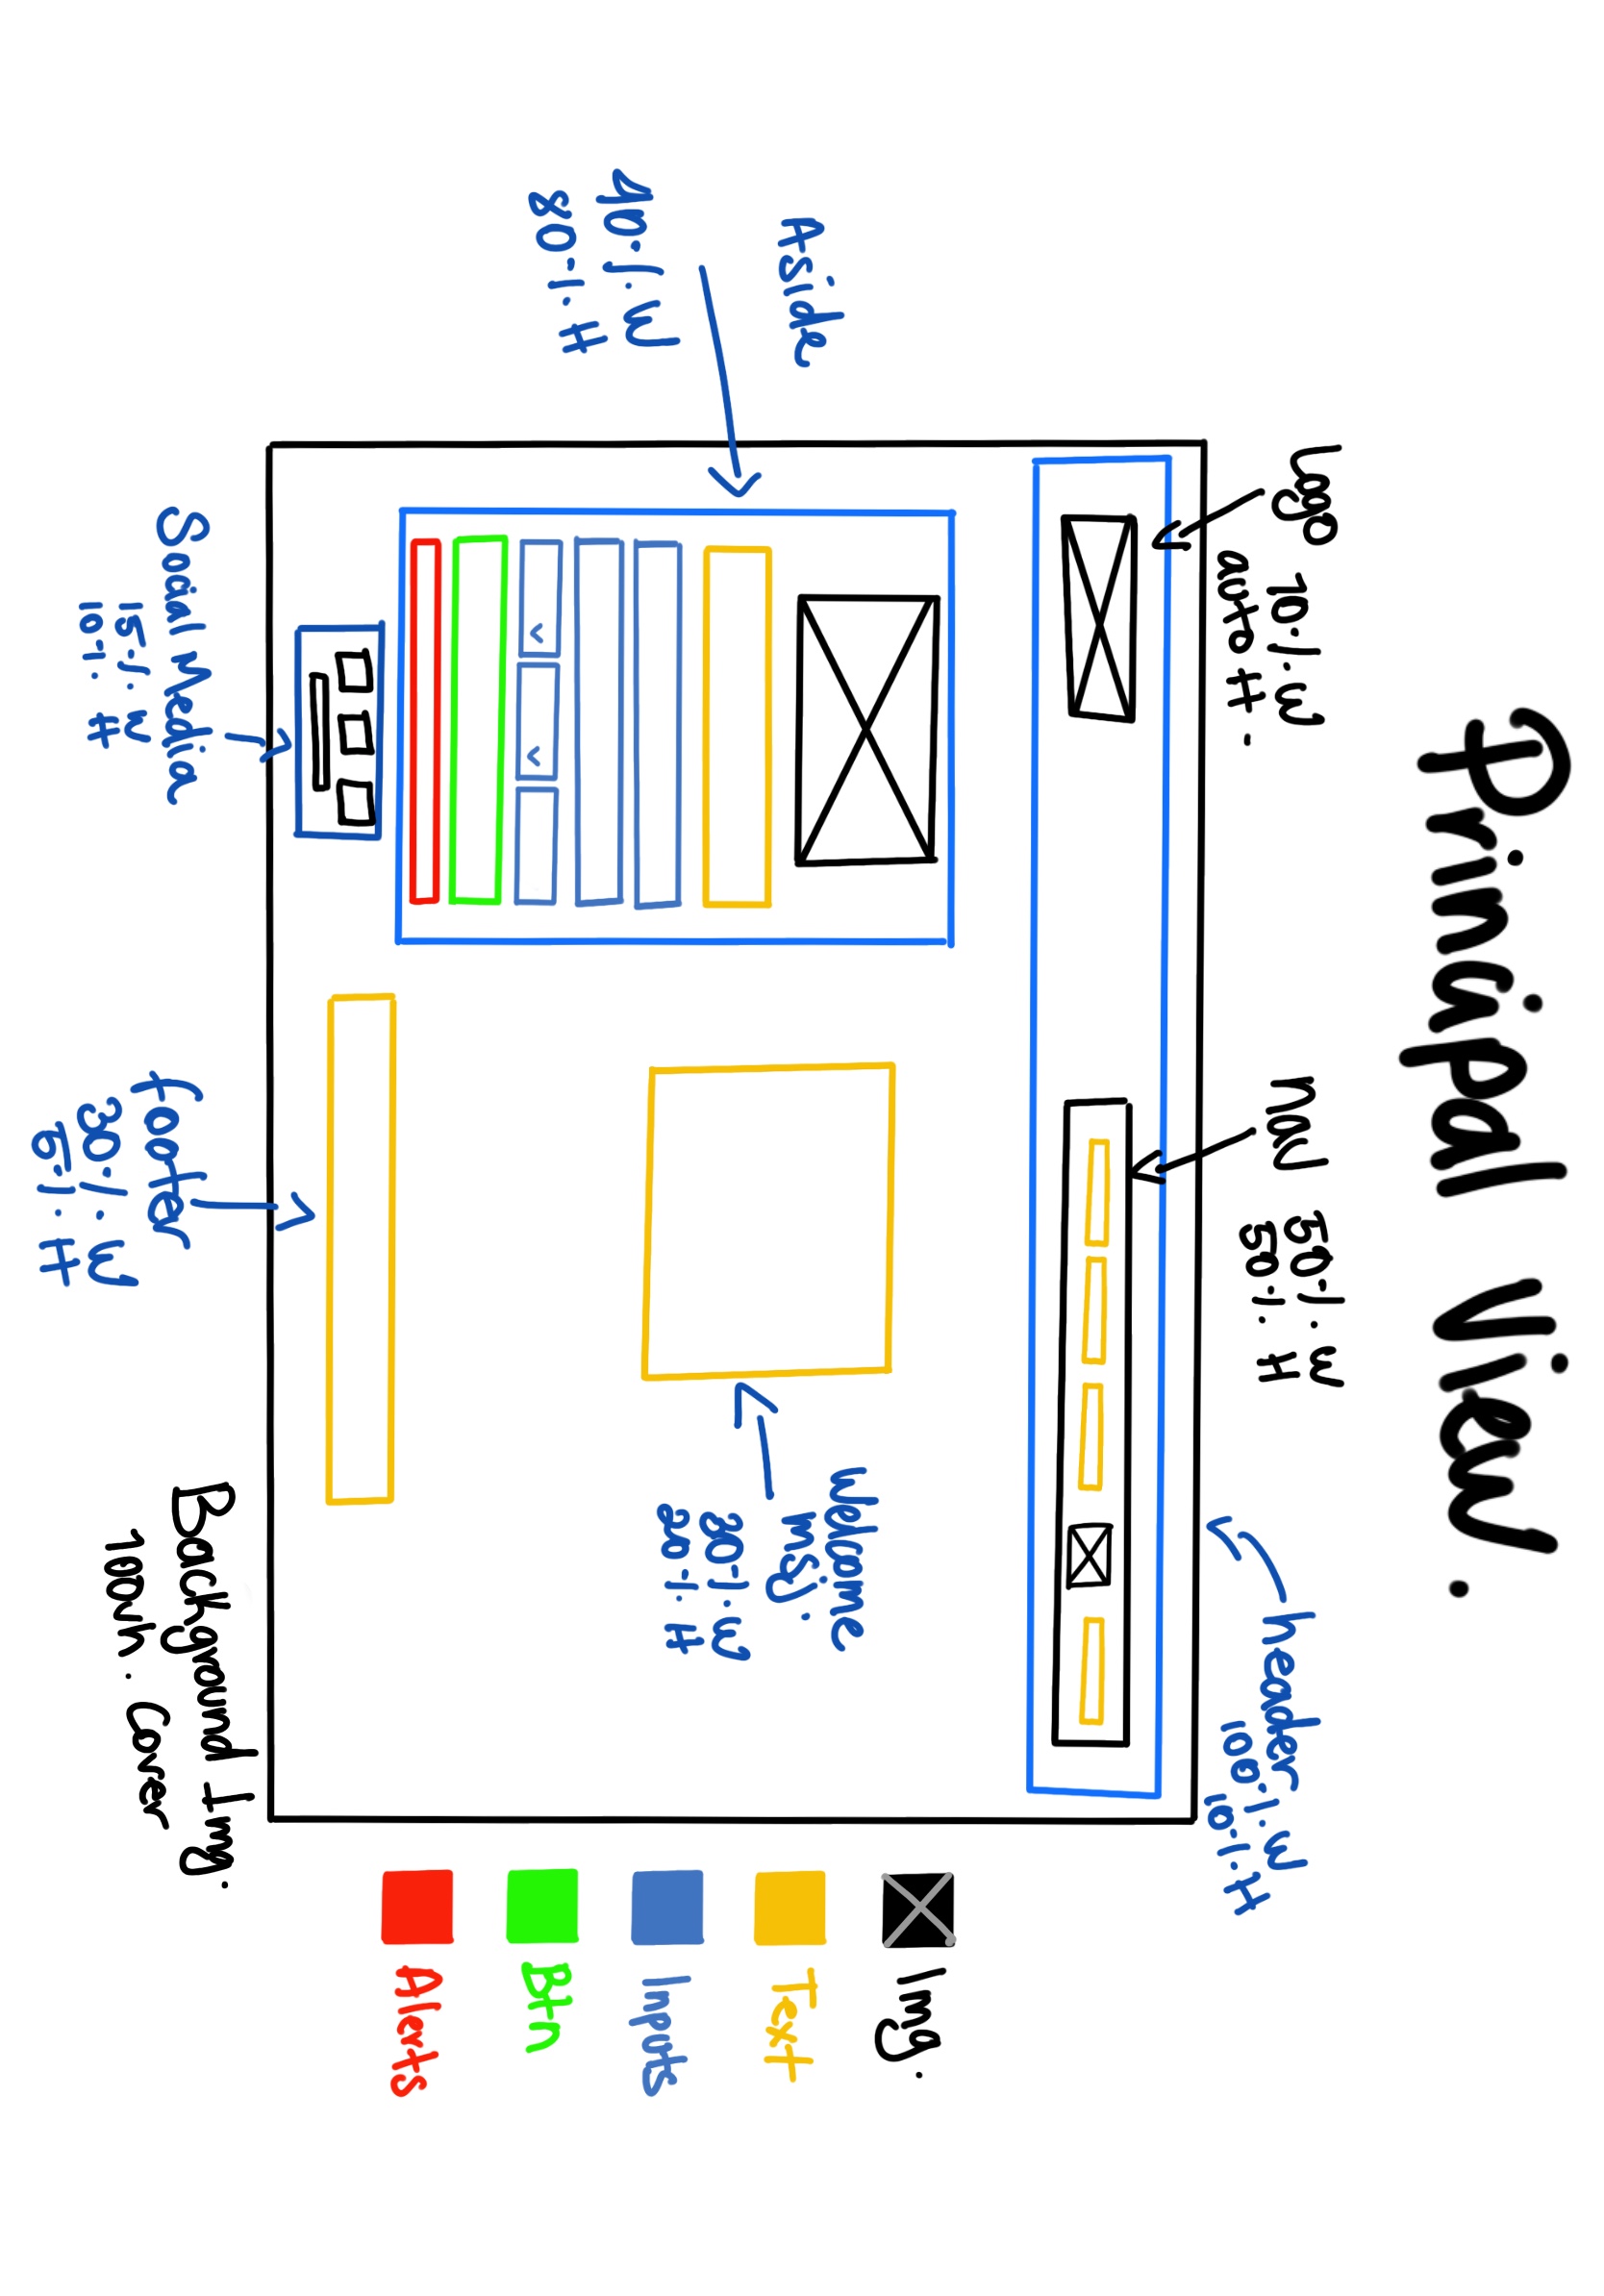 Principal View.
Logo
10%. W
auto H.
nav
50%. W
50%. H
header
100%. W
10%. H
Aside
40%. W
80%. H
Welcome
msj.
30%. W
20%. H
Img.
Text
Inputs
Btn
Alerts
Social Media
15%. W
10%. H
footer
30%. W
5%. H
Background Img.
100vh. Cover